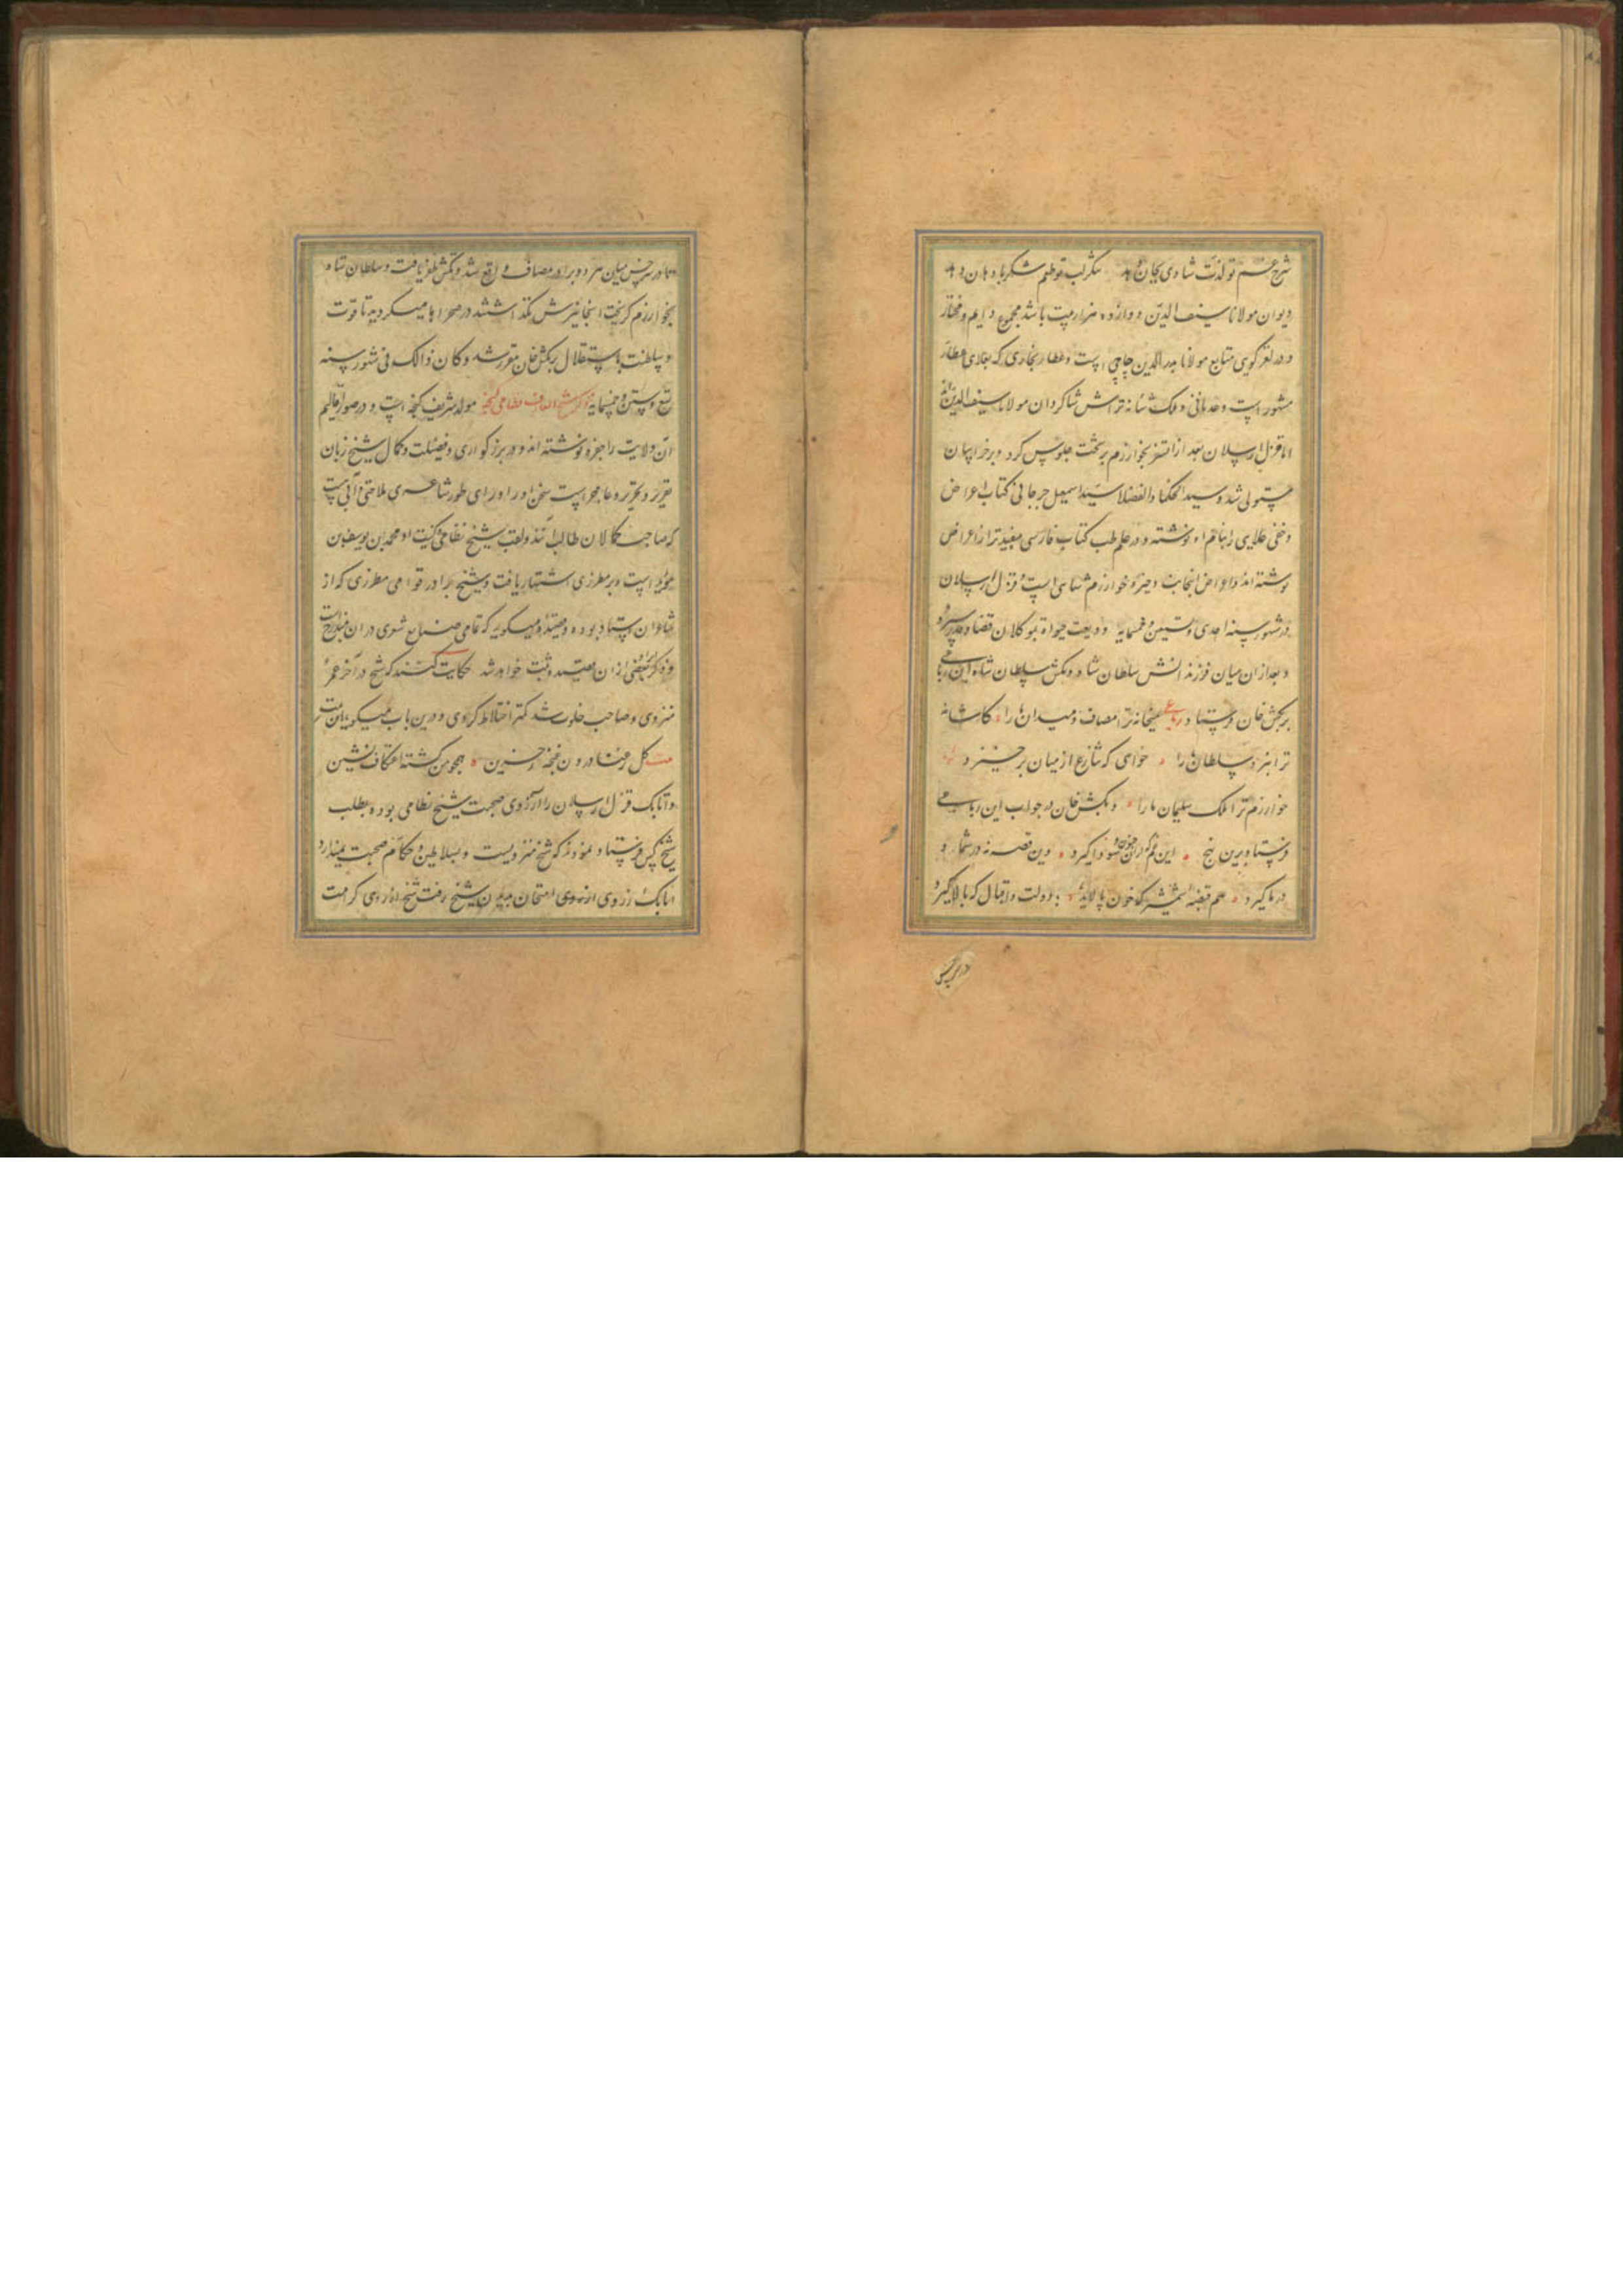 شرح غم تو لذت شادی بجان دهد شکر لب تو طعم شکر با دهان دهد
دیوان مولانا سیف الدین دوازده هزار بیت باشد مجموع دایم و مختار
و در لغز گوی متابع مولانا بدرالدین چاچی است و عطار بخاری که بعلای عطار
مشهور است و عدنانی و ملک شانه تراش شاکردان مولانا سیف الدین اند
اما قزل ارسلان بعد از اتسز بخوارزم بر تخت جلوس کرد و بر خراسان
مستولی شد و سید الحکما و الفضلا سید اسمعیل جرجانی کتاب اعراض
و خفی علایی را بنام او نوشته و در علم طب کتاب فارسی مفیدتر از اعراض
نوشته اند و اعراض انتخاب ذخیره خوارزم شاهی است و قزل ارسلان
در شهور سنه احدی و ستین و خمسمایه ودیعت حیوة بموکلان قضا و قدر سپرد
و بعد از آن میان فرزندانش سلطان شاه و تکش سلطان شاه این رباعی
بر تکش خان فرستاد رباعی میخانه ترا مصاف و میدان ما را کاشانه
ترا نبرد سلطان ما را خواهی که نزاع از میان برخیزد
خوارزم ترا ملک سلیمان ما را و تکش خان در جواب این رباعی
فرستاد برین نهج این غم اخی جنون سودا گیرد وین قصه نه در شما و
در ما گیرد هم قبضه شمشیر که خون پالاید دولت و اقبال که بالا گیرد
در سرخس
تا در سرخس میان هر دو برادر مصاف واقع شد و تکش ظفر یافت و سلطان شاه
بخوارزم گریخت انجا نیزش نگذاشتند در صحراها میکردید تا فوت
و سلطنت باستقلال بر تکش خان مقرر شد و کان ذالک فی شهور سنه
تسع و ستین و خمسمایه ذکر شیخ العارف نظامی گنجه مولد شریف گنجه است و در صور اقالیم
آن ولایت را جنزه نوشته اند و در بزرکواری و فضیلت و کمال شیخ زبان
تقریر و تحریر عاجز است سخن او را ورای طور شاعری ملاحتی و آنی است
که صاحب کمالان طالب آنند و لقب شیخ نظامی و کنیت او محمد بن یوسف بن
مؤید است و بمطرزی اشتهار یافت و شیخ برادر قوامی مطرزی که از
شاعران استاد بوده و قصیده میکوید که تمامی صنایع شعری در آن مندرج است
و ذکر بعضی از آن قصیده ثبت خواهد شد حکایت کنند که شیخ در آخر عمر
منزوی و صاحب خلوت شد کمتر اختلاط کردی و درین باب میکوید این بیت
بیت کل رعنا درون غنچه حزین همچو من گشته اعتکاف نشین
و اتابک قزل ارسلان را آرزوی صحبت شیخ نظامی بوده بطلب
شیخ کس فرستاد نمودند که شیخ منزویست و بسلاطین و حکام صحبت نمیدارد
اتابک از روی امتحان بدیدن شیخ رفت شیخ از روی کرامت